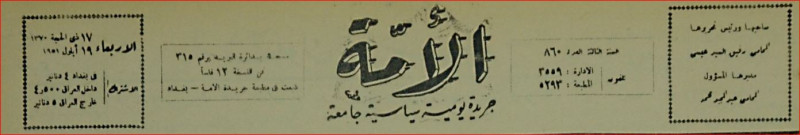 صاحبها ورئيس تحريرها
المحامي رفيق السيد عيسى
مديرها المسؤول
المحامي عبد الحميد
السنة الثالثة العدد ٨٦٠
تلفون
الادارة : ٣٥٥٩
المطبعة : ٥٢٩٣
الأمة
جريدة يومية سياسية جامعة
مسجلة بدائرة البريد برقم ٣١٥
ثمن النسخة ١٢ فلساً
طبعت في مطبعة جريدة الامة - بغداد
الاربعاء
١٧ ذي الحجة ١٣٧٠
١٩ أيلول ١٩٥١
الاشتراك
في بغداد ٤ دنانير
داخل العراق ٤,٥٠٠
خارج العراق ٥ دنانير